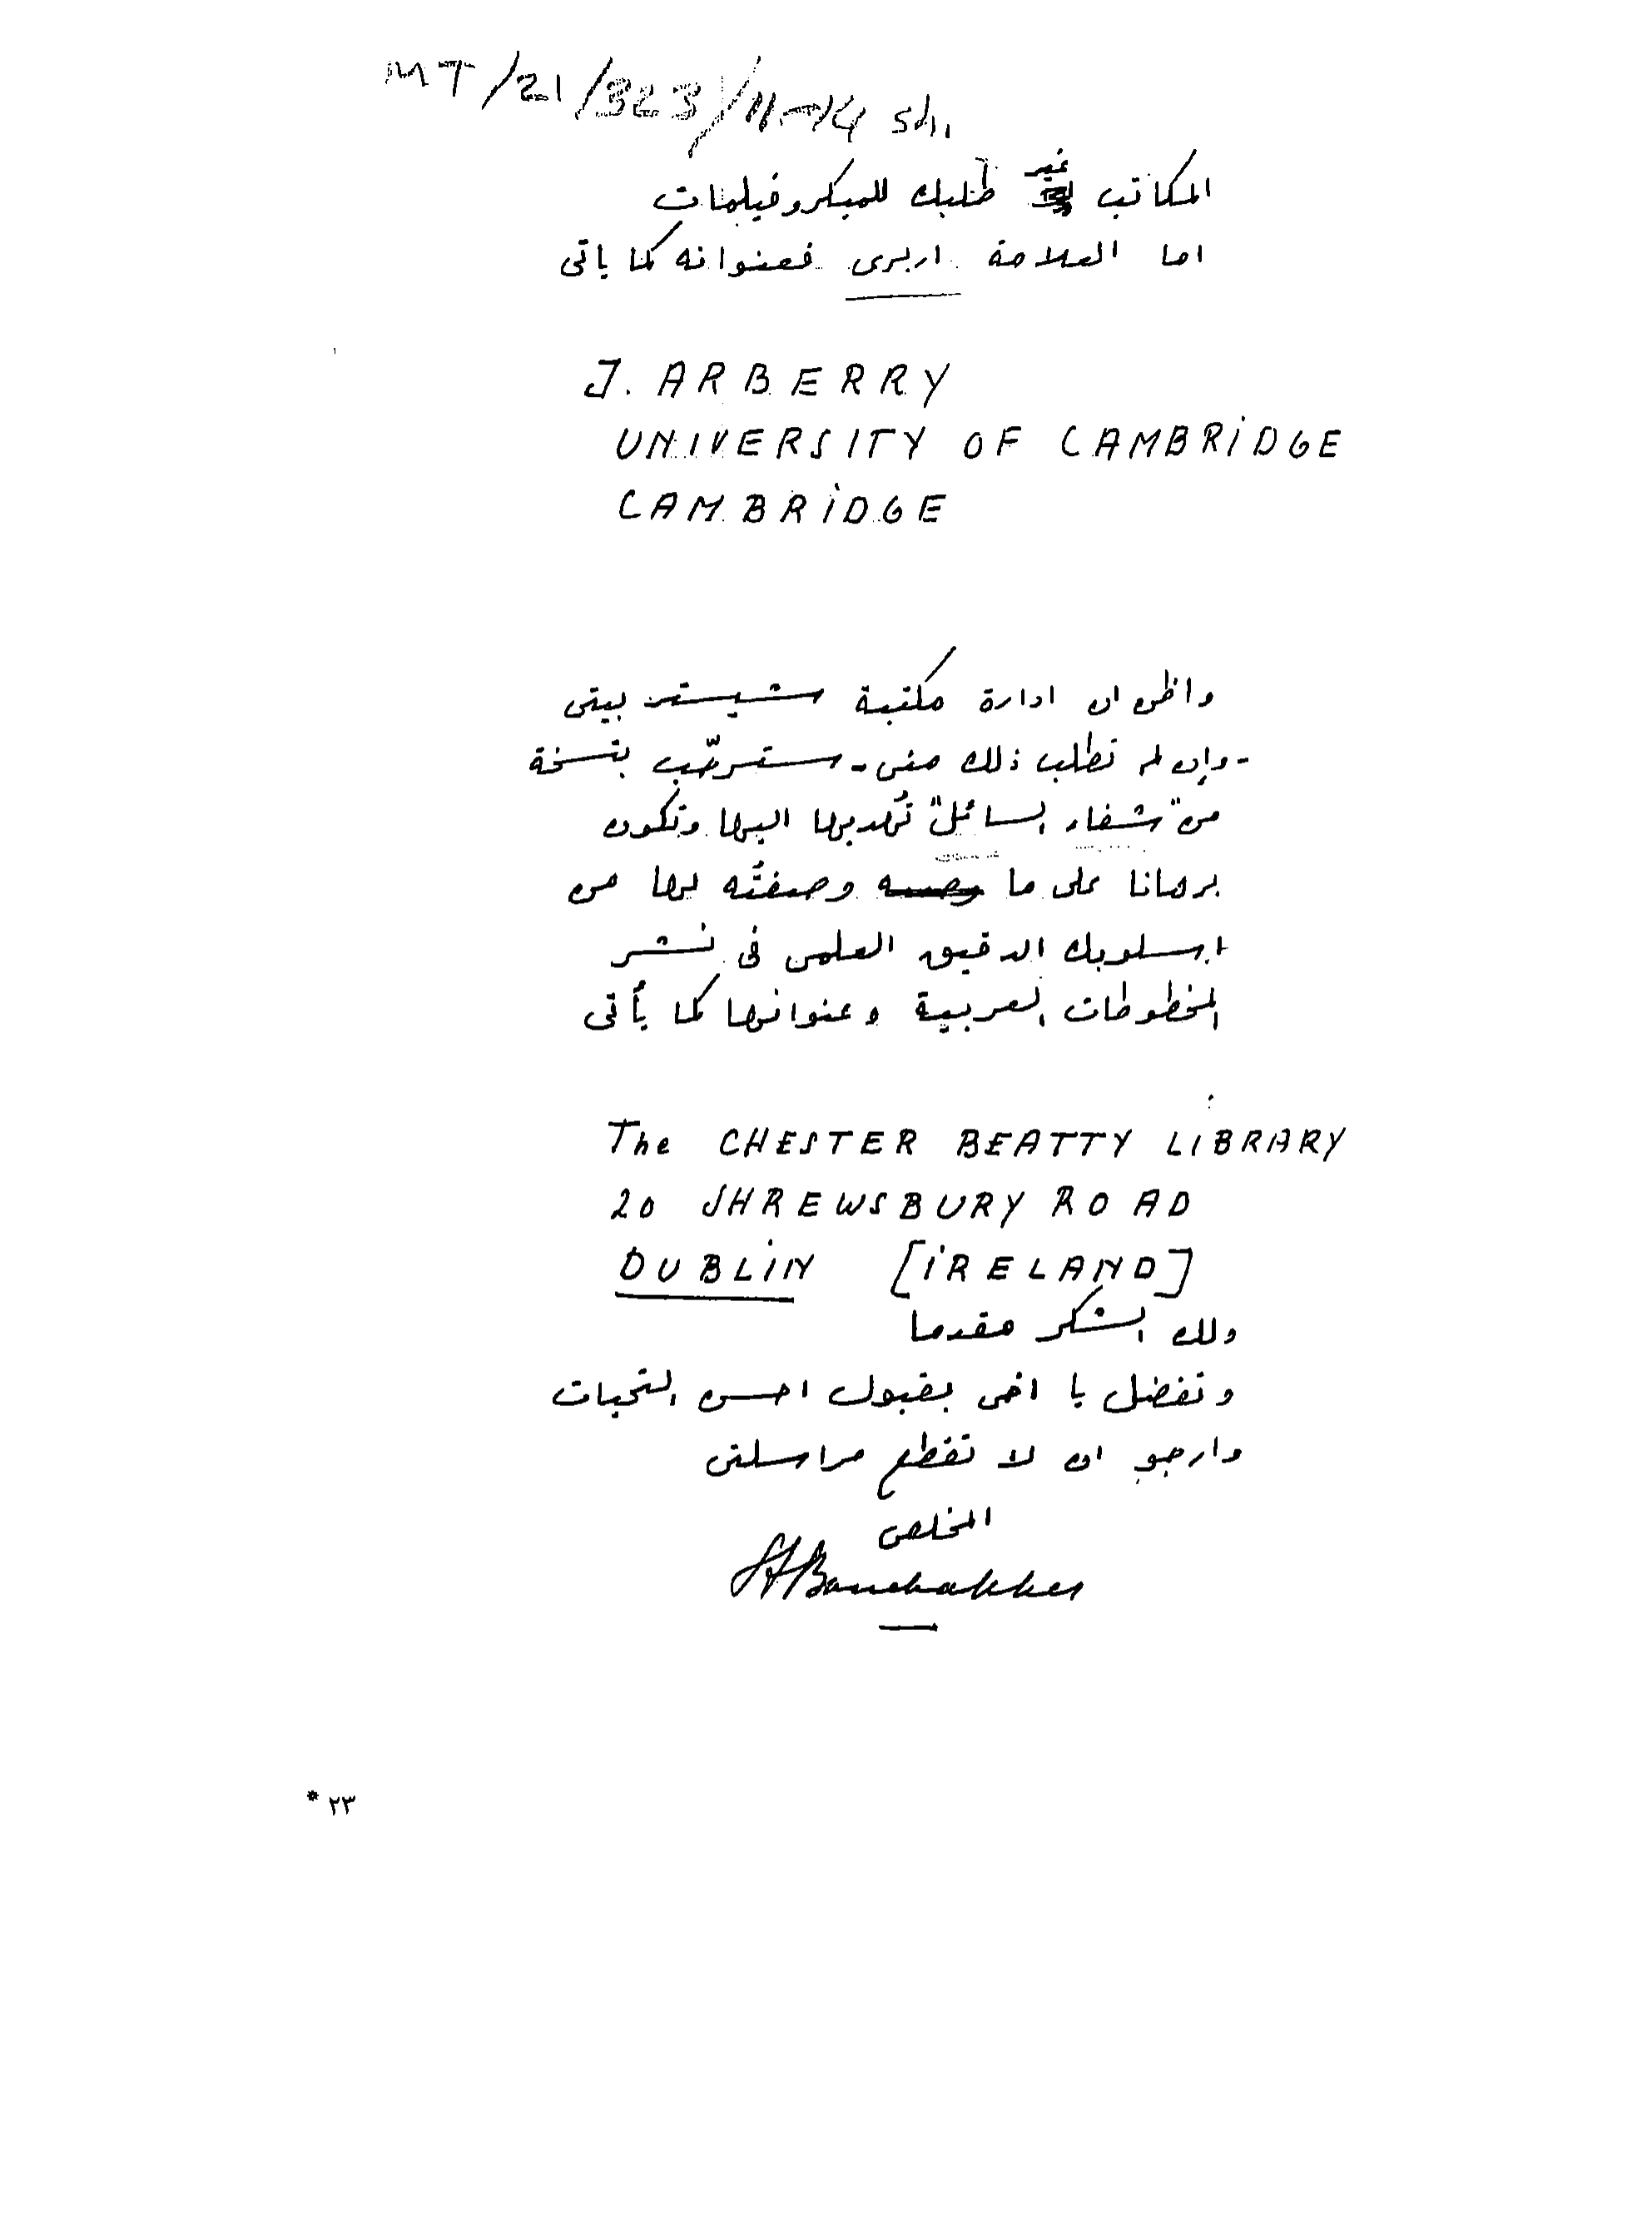 MT/21/323/11-14 sh.
المكاتب غير طلبك للميكروفيلمات
اما العلامة اربرى فعنوانه كما ياتى
J. ARBERRY
UNIVERSITY OF CAMBRIDGE
CAMBRIDGE
واظن ان ادارة مكتبة شيستر بيتى
- وإن لم تطلب ذلك منى - سترحّب بنسخة
من "شفاء السائل" تُهديها اليها وتكون
برهانا على ما وصفتُه لها من
اسلوبك الدقيق العلمى فى نشر
المخطوطات العربية وعنوانها كما يأتى
The CHESTER BEATTY LIBRARY
20 SHREWSBURY ROAD
DUBLIN [IRELAND]
ولك الشكر مقدما
وتفضل يا اخى بقبول احسن التحيات
وارجو ان لا تقطع مراسلتى
المخلص
SABonebakker
* ٢٣